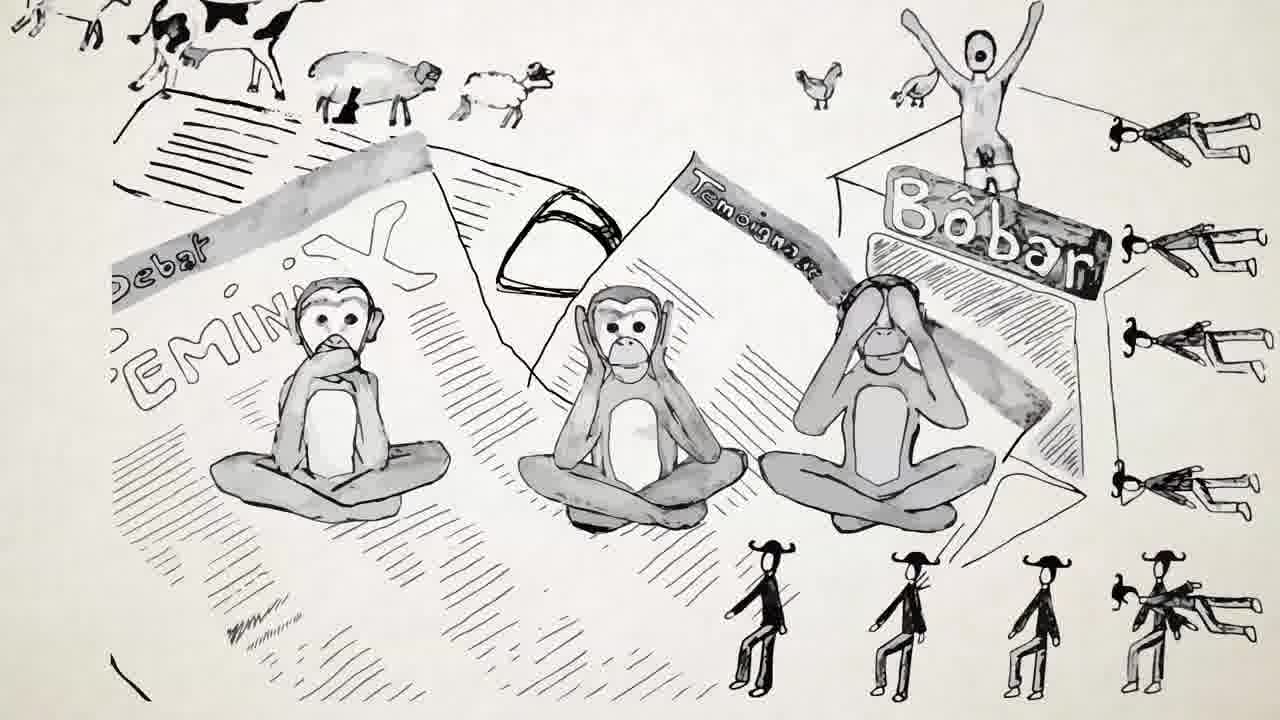 Debat
FEMINiY
Temoignage
Bôbar